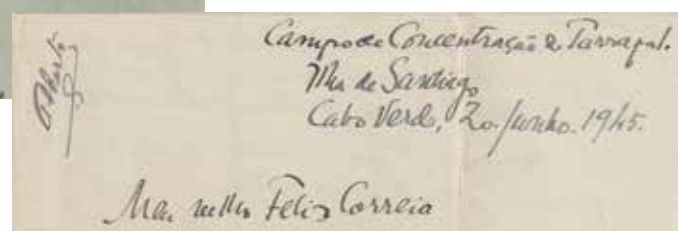 Campo de Concentração de Tarrafal.
Ilha de Santiago
Cabo Verde, 20. Junho. 1945.
Aberta
Felix Correia